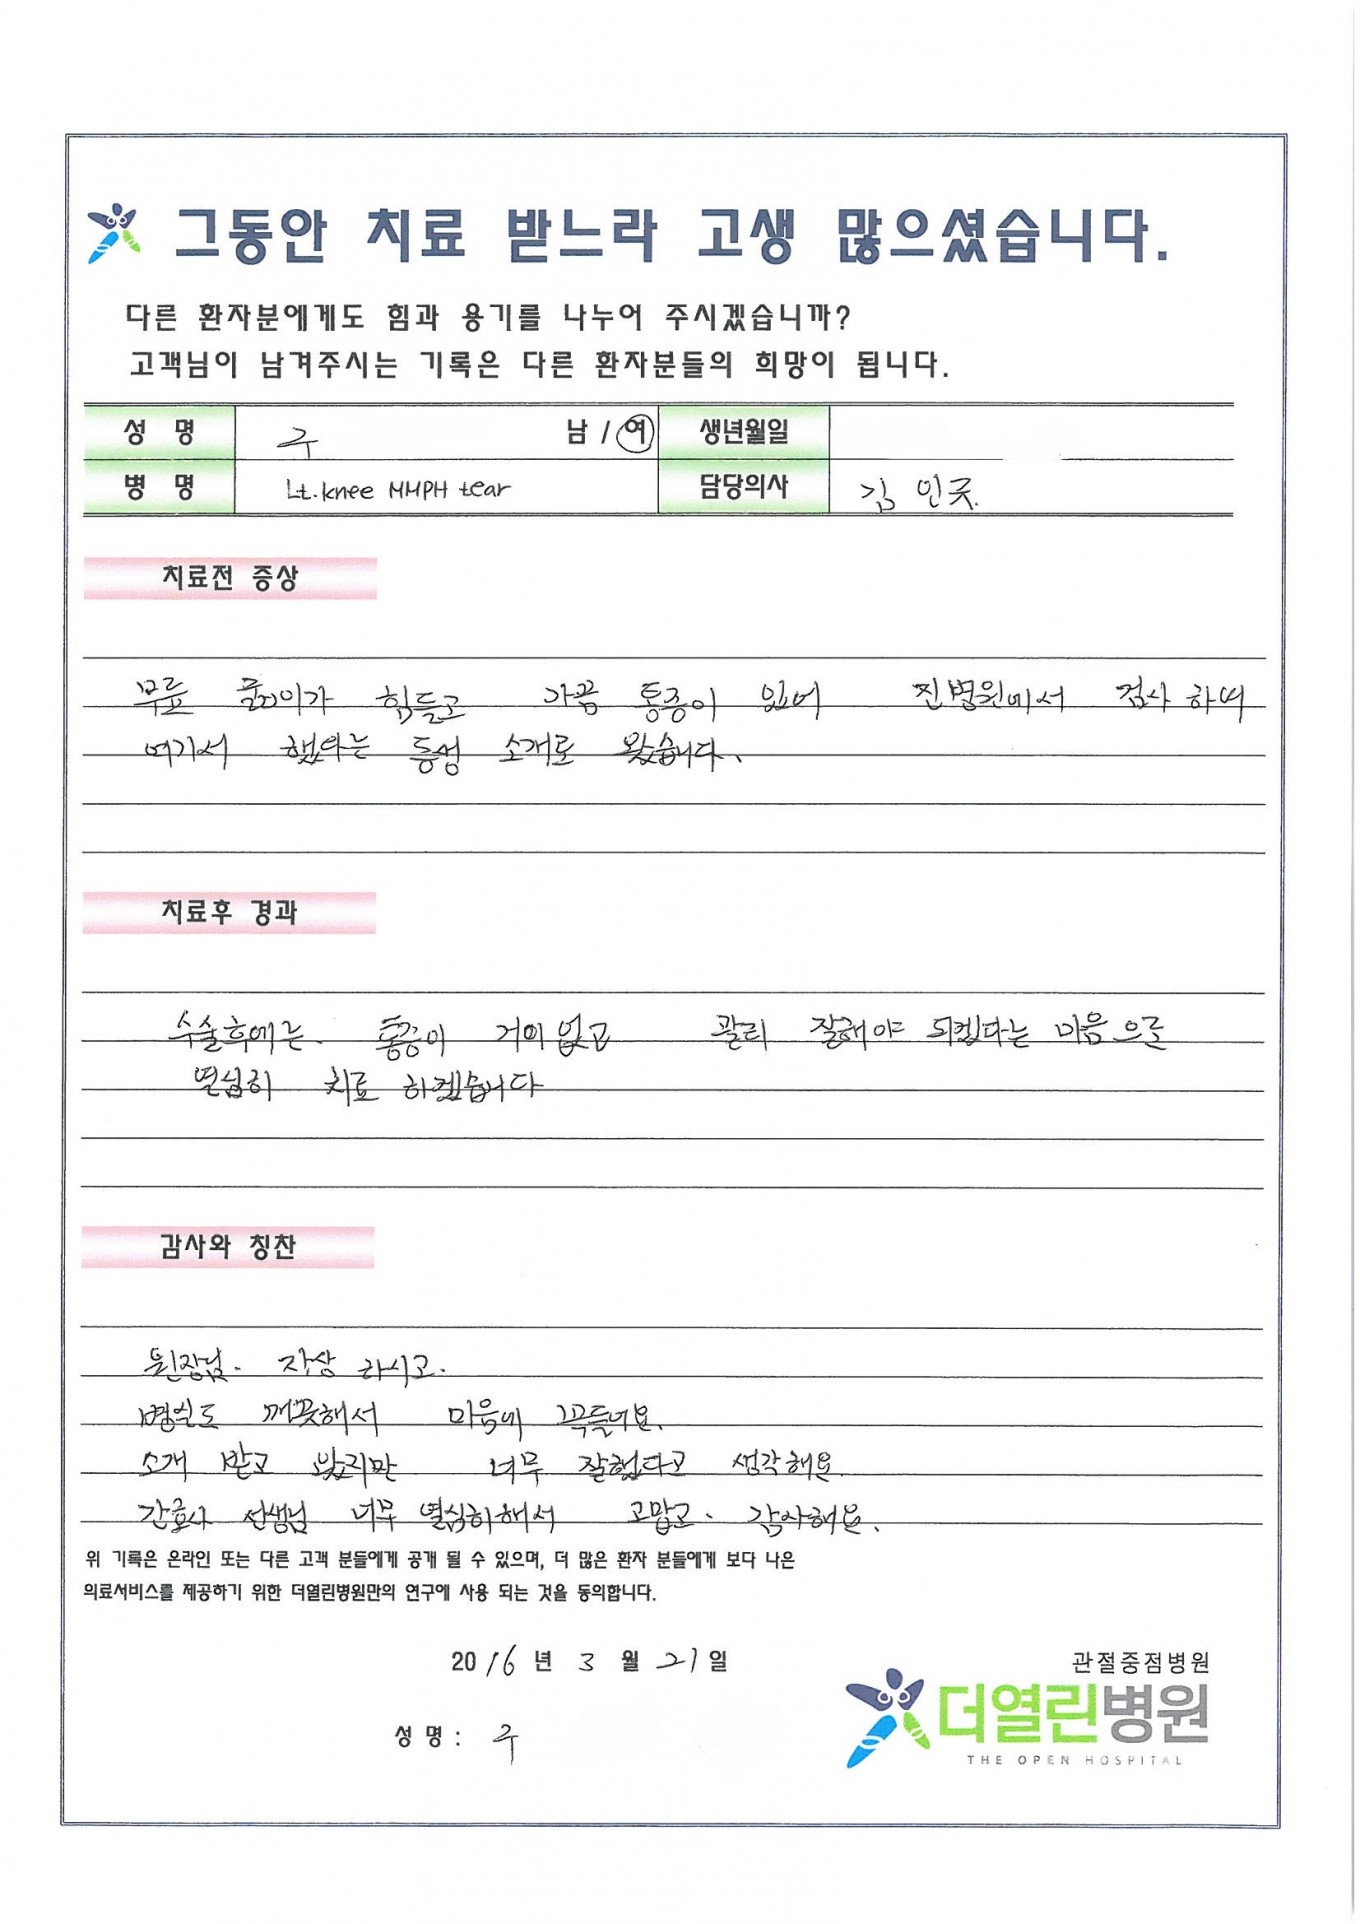 그동안 치료 받느라 고생 많으셨습니다.
다른 환자분에게도 힘과 용기를 나누어 주시겠습니까?
고객님이 남겨주시는 기록은 다른 환자분들의 희망이 됩니다.
성 명 주 남 / 여 생년월일
병 명 Lt.knee MMPH tear 담당의사 김 인국
치료전 증상
무릎 풀이가 힘들고 가끔 통증이 있어 진병원에서 검사 하며
여기서 했다는 동명 소개로 왔습니다.
치료후 경과
수술후에는 통증이 거이 없고 관리 잘해야 되겠다는 마음으로
열심히 치료 하겠습니다
감사와 칭찬
원장님. 자상 하시고.
병실도 깨끗해서 마음에 꼭들어요.
소개 받고 왔지만 너무 잘했다고 생각해요
간호사 선생님 너무 열심히해서 고맙고. 감사해요.
위 기록은 온라인 또는 다른 고객 분들에게 공개 될 수 있으며, 더 많은 환자 분들에게 보다 나은
의료서비스를 제공하기 위한 더열린병원만의 연구에 사용 되는 것을 동의합니다.
2016 년 3 월 21 일
관절중점병원
더열린병원
THE OPEN HOSPITAL
성 명 : 주